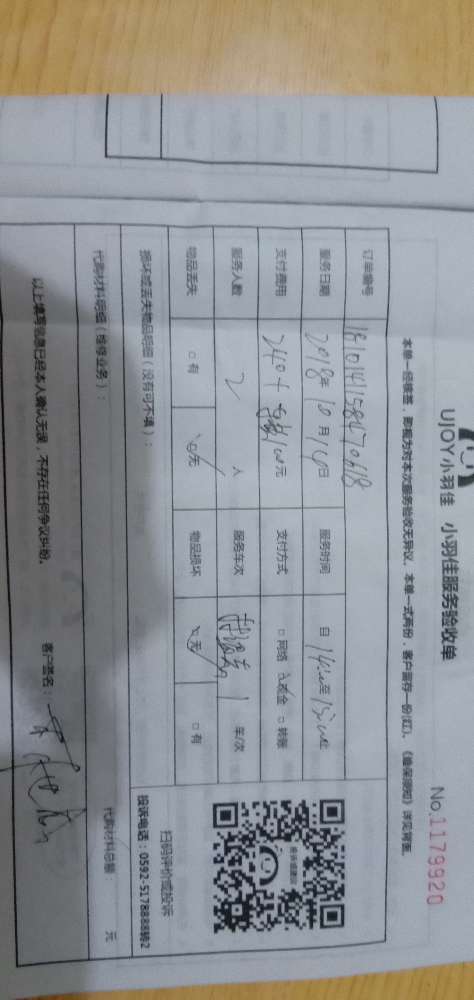 UJOY小羽佳 小羽佳服务验收单
No.1179920
本单一经核签，即视为对本次服务验收无异议。本单一式两份，客户留存一份(红)。《撤保须知》详见背面。
订单编号 1810141158470618
服务日期 2018年10月14日 服务时间 自 14:00至
支付费用 240+ 元 支付方式 □网络 ☑现金 □转账
服务人数 2 人 服务车次 1 车/次
物品丢失 □有 ☑无 物品损坏 ☑无 □有
损坏或丢失物品明细（没有可不填）：
扫码评价或投诉
投诉电话：0592-5178888转2
代购材料明细（维修业务）： 代购材料总额： 元
以上填写信息已经本人确认无误，不存在任何争议纠纷。 客户签名：